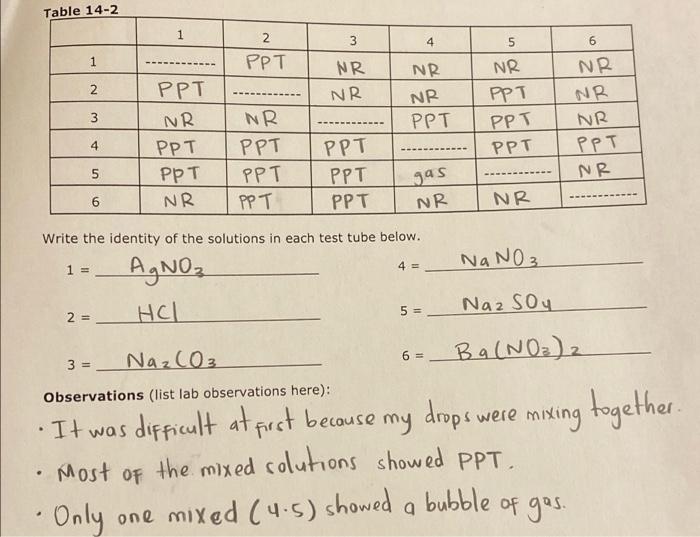 Table 14-2
1 2 3 4 5 6
1 ------------ PPT NR NR NR NR
2 PPT ------------ NR NR PPT NR
3 NR NR ------------ PPT PPT NR
4 PPT PPT PPT ------------ PPT PPT
5 PPT PPT PPT gas ------------ NR
6 NR PPT PPT NR NR ------------
Write the identity of the solutions in each test tube below.
1 = AgNO3 4 = NaNO3
2 = HCl 5 = Na2SO4
3 = Na2CO3 6 = Ba(NO3)2
Observations (list lab observations here):
· It was difficult at first because my drops were mixing together.
· Most of the mixed solutions showed PPT.
· Only one mixed (4.5) showed a bubble of gas.